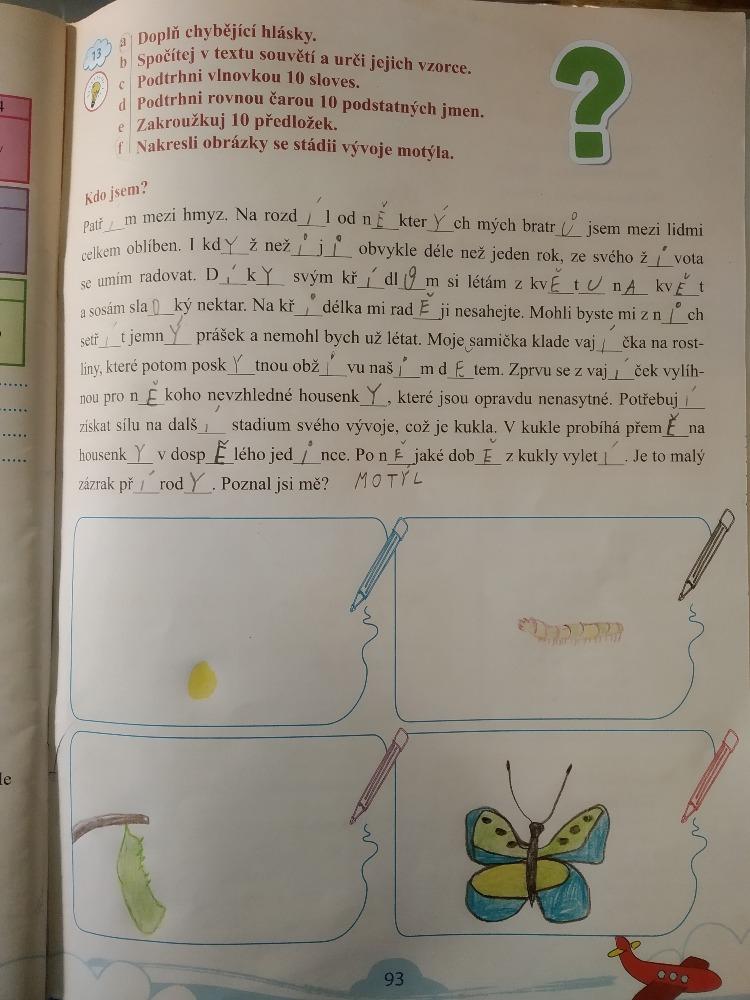 13
a Doplň chybějící hlásky.
b Spočítej v textu souvětí a urči jejich vzorce.
c Podtrhni vlnovkou 10 sloves.
d Podtrhni rovnou čarou 10 podstatných jmen.
e Zakroužkuj 10 předložek.
f Nakresli obrázky se stádii vývoje motýla.
Kdo jsem?
Patřím mezi hmyz. Na rozdíl od nĚkterÝch mých bratrŮ jsem mezi lidmi
celkem oblíben. I kdYž nežiji obvykle déle než jeden rok, ze svého života
se umím radovat. DíkY svým křídlům si létám z kvĚtU nA kvĚt
a sosám slaDký nektar. Na křidélka mi radĚji nesahejte. Mohli byste mi z nich
setřít jemnÝ prášek a nemohl bych už létat. Moje samička klade vajíčka na rost-
liny, které potom poskYtnou obživu našim dĚtem. Zprvu se z vajíček vylíh-
nou pro nĚkoho nevzhledné housenkY, které jsou opravdu nenasytné. Potřebují
získat sílu na další stadium svého vývoje, což je kukla. V kukle probíhá přemĚna
housenkY v dospĚlého jedince. Po nĚjaké dobĚ z kukly vyletí. Je to malý
zázrak přírodY. Poznal jsi mě? MOTÝL
93
le